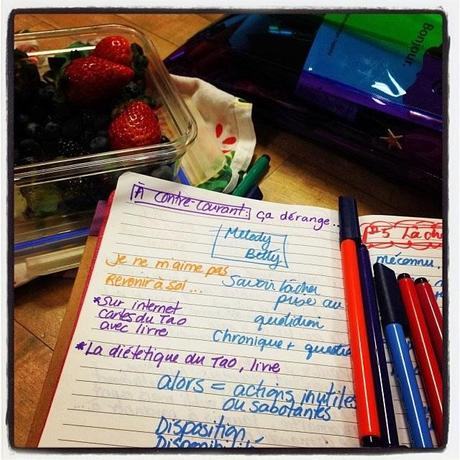 Bonjour.
À contre-courant: ça dérange...
Melody
Betty
Je ne m'aime pas
Revenir à soi...
Savoir lâcher
prise au
quotidien
*Sur internet
cartes du Tao
avec livre
chronique +
*La diététique du Tao, livre
alors = actions inutiles
ou sabotantes
Disposition
Disponibilité
méconnu.